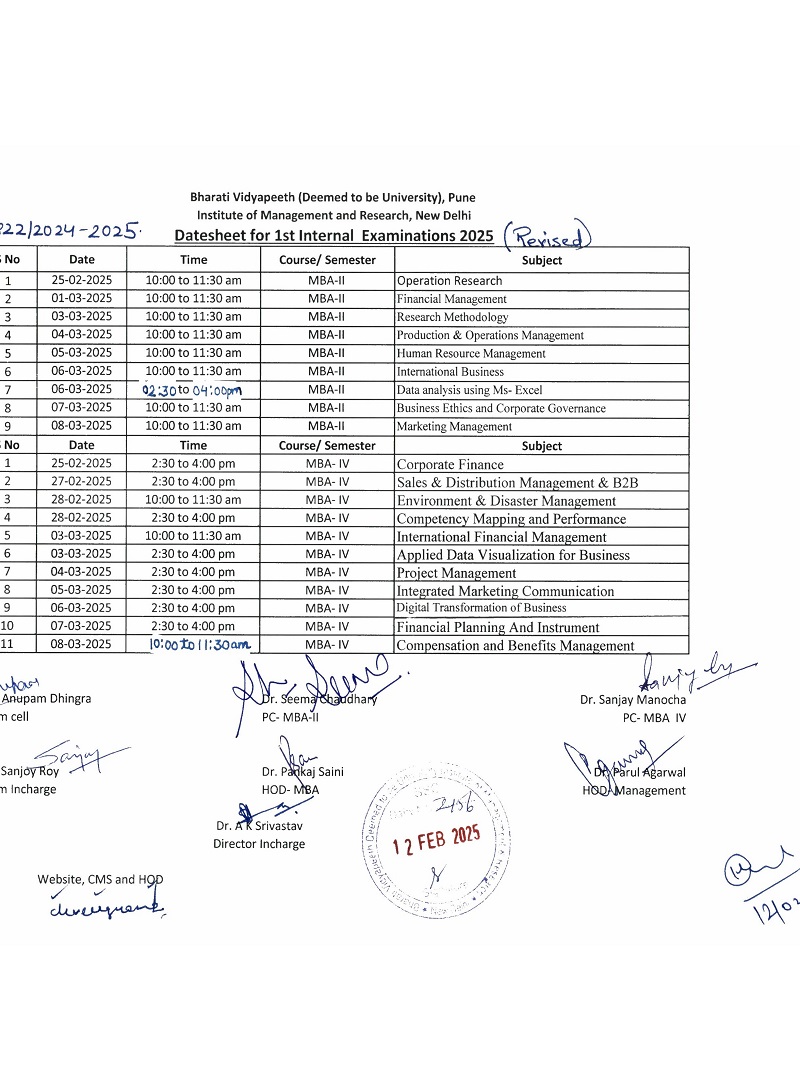 Bharati Vidyapeeth (Deemed to be University), Pune
Institute of Management and Research, New Delhi
22/2024-2025.
Datesheet for 1st Internal Examinations 2025 (Revised)
No Date Time Course/ Semester Subject
1 25-02-2025 10:00 to 11:30 am MBA-II Operation Research
2 01-03-2025 10:00 to 11:30 am MBA-II Financial Management
3 03-03-2025 10:00 to 11:30 am MBA-II Research Methodology
4 04-03-2025 10:00 to 11:30 am MBA-II Production & Operations Management
5 05-03-2025 10:00 to 11:30 am MBA-II Human Resource Management
6 06-03-2025 10:00 to 11:30 am MBA-II International Business
7 06-03-2025 02:30 to 04:00pm MBA-II Data analysis using Ms- Excel
8 07-03-2025 10:00 to 11:30 am MBA-II Business Ethics and Corporate Governance
9 08-03-2025 10:00 to 11:30 am MBA-II Marketing Management
No Date Time Course/ Semester Subject
1 25-02-2025 2:30 to 4:00 pm MBA- IV Corporate Finance
2 27-02-2025 2:30 to 4:00 pm MBA- IV Sales & Distribution Management & B2B
3 28-02-2025 10:00 to 11:30 am MBA- IV Environment & Disaster Management
4 28-02-2025 2:30 to 4:00 pm MBA- IV Competency Mapping and Performance
5 03-03-2025 10:00 to 11:30 am MBA- IV International Financial Management
6 03-03-2025 2:30 to 4:00 pm MBA- IV Applied Data Visualization for Business
7 04-03-2025 2:30 to 4:00 pm MBA- IV Project Management
8 05-03-2025 2:30 to 4:00 pm MBA- IV Integrated Marketing Communication
9 06-03-2025 2:30 to 4:00 pm MBA- IV Digital Transformation of Business
10 07-03-2025 2:30 to 4:00 pm MBA- IV Financial Planning And Instrument
11 08-03-2025 10:00 to 11:30am MBA- IV Compensation and Benefits Management
Anupam Dhingra Dr. Seema Chaudhary Dr. Sanjay Manocha
m cell PC- MBA-II PC- MBA IV
Sanjoy Roy Dr. Pankaj Saini Dr. Parul Agarwal
m Incharge HOD- MBA HOD- Management
Dr. A K Srivastav
Director Incharge
2156
12 FEB 2025
Website, CMS and HOD